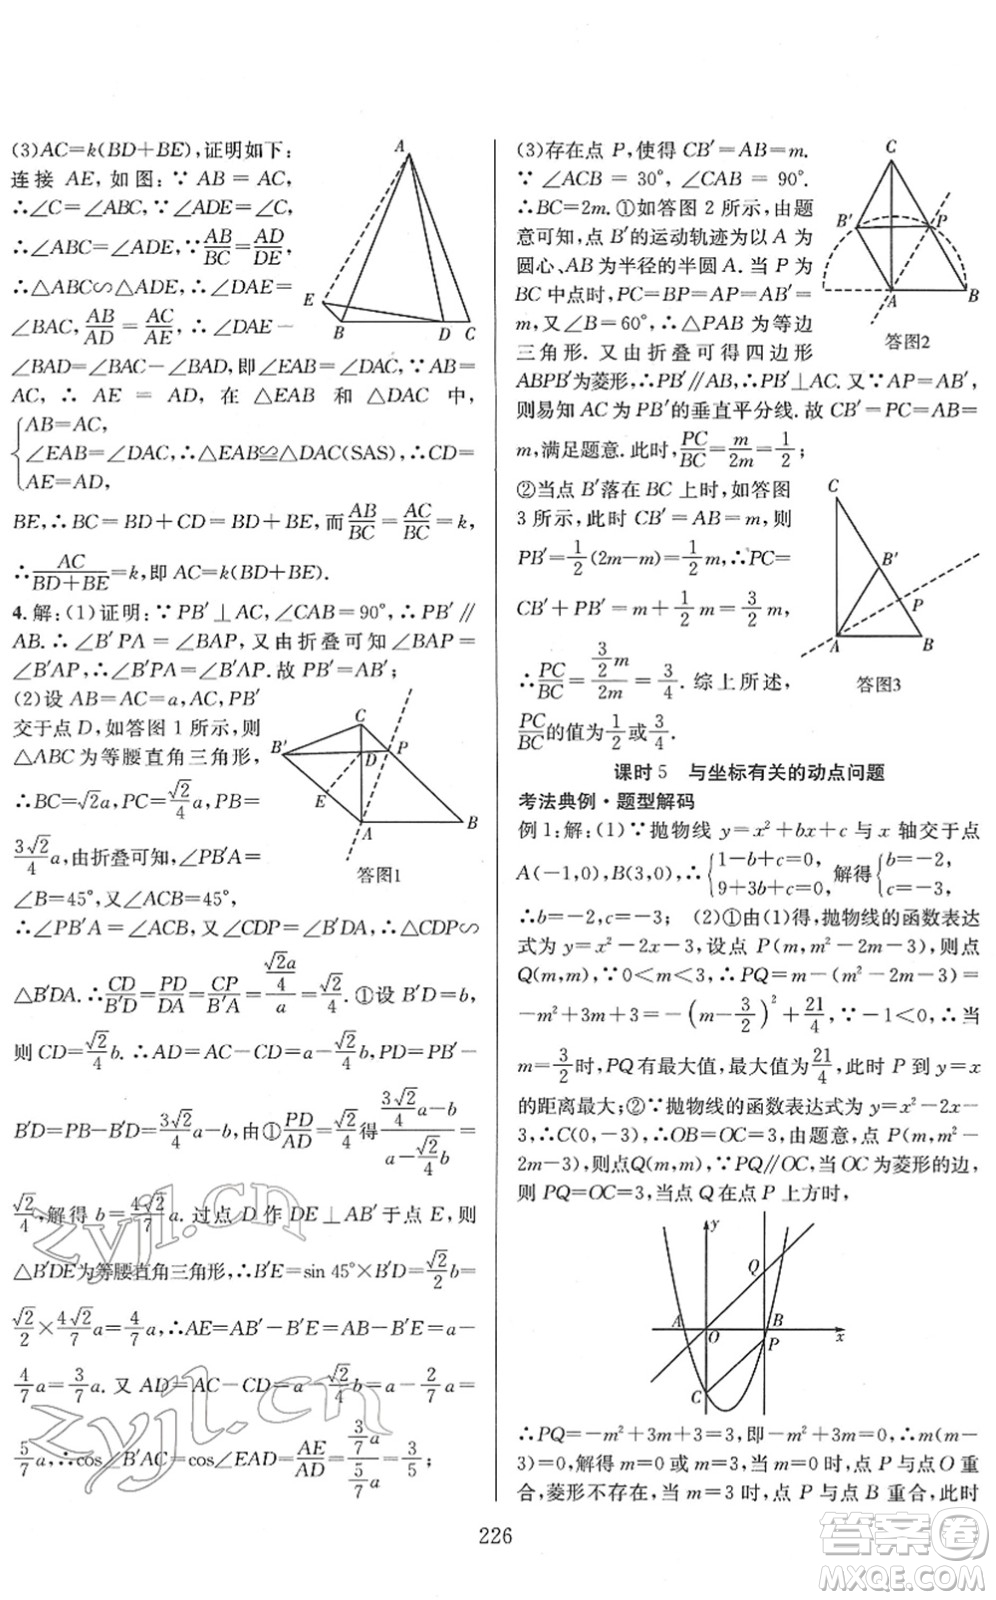 (3)AC=k(BD+BE),证明如下:
连接 AE,如图:∵AB=AC,
∴∠C=∠ABC,∵∠ADE=∠C,
∴∠ABC=∠ADE,∵AB/BC=AD/DE,
∴△ABC∽△ADE,∴∠DAE=
∠BAC,AB/AD=AC/AE,∴∠DAE-
∠BAD=∠BAC-∠BAD,即∠EAB=∠DAC,∵AB=
AC,∴AE=AD,在△EAB 和△DAC 中,
{AB=AC,
∠EAB=∠DAC,∴△EAB≌△DAC(SAS),∴CD=
AE=AD,
BE,∴BC=BD+CD=BD+BE,而AB/BC=AC/BC=k,
∴AC/(BD+BE)=k,即 AC=k(BD+BE).
4.解:(1)证明:∵PB′⊥AC,∠CAB=90°,∴PB′∥
AB.∴∠B′PA=∠BAP,又由折叠可知∠BAP=
∠B′AP,∴∠B′PA=∠B′AP.故 PB′=AB′;
(2)设 AB=AC=a,AC,PB′
交于点 D,如答图 1 所示,则
△ABC为等腰直角三角形,
∴BC=√2a,PC=√2/4a,PB=
3√2/4a,由折叠可知,∠PB′A=
∠B=45°,又∠ACB=45°,
∴∠PB′A=∠ACB,又∠CDP=∠B′DA,∴△CDP∽
△B′DA.∴CD/B′D=PD/DA=CP/B′A=(√2a/4)/a=√2/4.①设 B′D=b,
则 CD=√2/4b.∴AD=AC-CD=a-√2/4b,PD=PB′-
B′D=PB-B′D=3√2/4a-b,由①PD/AD=√2/4得(3√2/4a-b)/(a-√2/4b)=
√2/4,解得 b=4√2/7a.过点 D 作 DE⊥AB′于点 E,则
△B′DE为等腰直角三角形,∴B′E=sin 45°×B′D=√2/2b=
√2/2×4√2/7a=4/7a,∴AE=AB′-B′E=AB-B′E=a-
4/7a=3/7a.又 AD=AC-CD=a-√2/4b=a-2/7a=
5/7a,∴cos∠B′AC=cos∠EAD=AE/AD=(3/7a)/(5/7a)=3/5;
A
E
B
D
C
C
B′
P
D
E
A
B
答图1
(3)存在点 P,使得 CB′=AB=m.
∵∠ACB=30°,∠CAB=90°.
∴BC=2m.①如答图 2 所示,由题
意可知,点 B′的运动轨迹为以 A 为
圆心、AB 为半径的半圆 A.当 P 为
BC 中点时,PC=BP=AP=AB′=
m,又∠B=60°,∴△PAB 为等边
三角形.又由折叠可得四边形
ABPB′为菱形,∴PB′∥AB,∴PB′⊥AC.又∵AP=AB′,
则易知 AC 为 PB′的垂直平分线.故 CB′=PC=AB=
m,满足题意.此时,PC/BC=m/2m=1/2;
②当点 B′落在 BC 上时,如答图
3 所示,此时 CB′=AB=m,则
PB′=1/2(2m-m)=1/2m,∴PC=
CB′+PB′=m+1/2m=3/2m,
∴PC/BC=(3/2m)/2m=3/4.综上所述,
PC/BC的值为1/2或3/4.
C
B′
P
A
B
答图2
C
B′
P
A
B
答图3
课时 5 与坐标有关的动点问题
考法典例·题型解码
例 1:解:(1)∵抛物线 y=x²+bx+c 与 x 轴交于点
A(-1,0),B(3,0),∴{1-b+c=0, 9+3b+c=0,解得{b=-2, c=-3,
∴b=-2,c=-3; (2)①由(1)得,抛物线的函数表达
式为 y=x²-2x-3,设点 P(m,m²-2m-3),则点
Q(m,m),∵0<m<3,∴PQ=m-(m²-2m-3)=
-m²+3m+3=-(m-3/2)²+21/4,∵-1<0,∴当
m=3/2时,PQ 有最大值,最大值为21/4,此时 P 到 y=x
的距离最大;②∵抛物线的函数表达式为 y=x²-2x-
3,∴C(0,-3),∴OB=OC=3,由题意,点 P(m,m²-
2m-3),则点Q(m,m),∵PQ∥OC,当 OC为菱形的边,
则 PQ=OC=3,当点 Q 在点 P 上方时,
y
Q
A
O
B
x
P
C
∴PQ=-m²+3m+3=3,即-m²+3m=0,∴m(m-
3)=0,解得 m=0 或 m=3,当 m=0 时,点 P与点O 重
合,菱形不存在,当 m=3 时,点 P 与点 B 重合,此时
226
zyjl.cn
zyjl.cn
答案卷
MXQE.COM